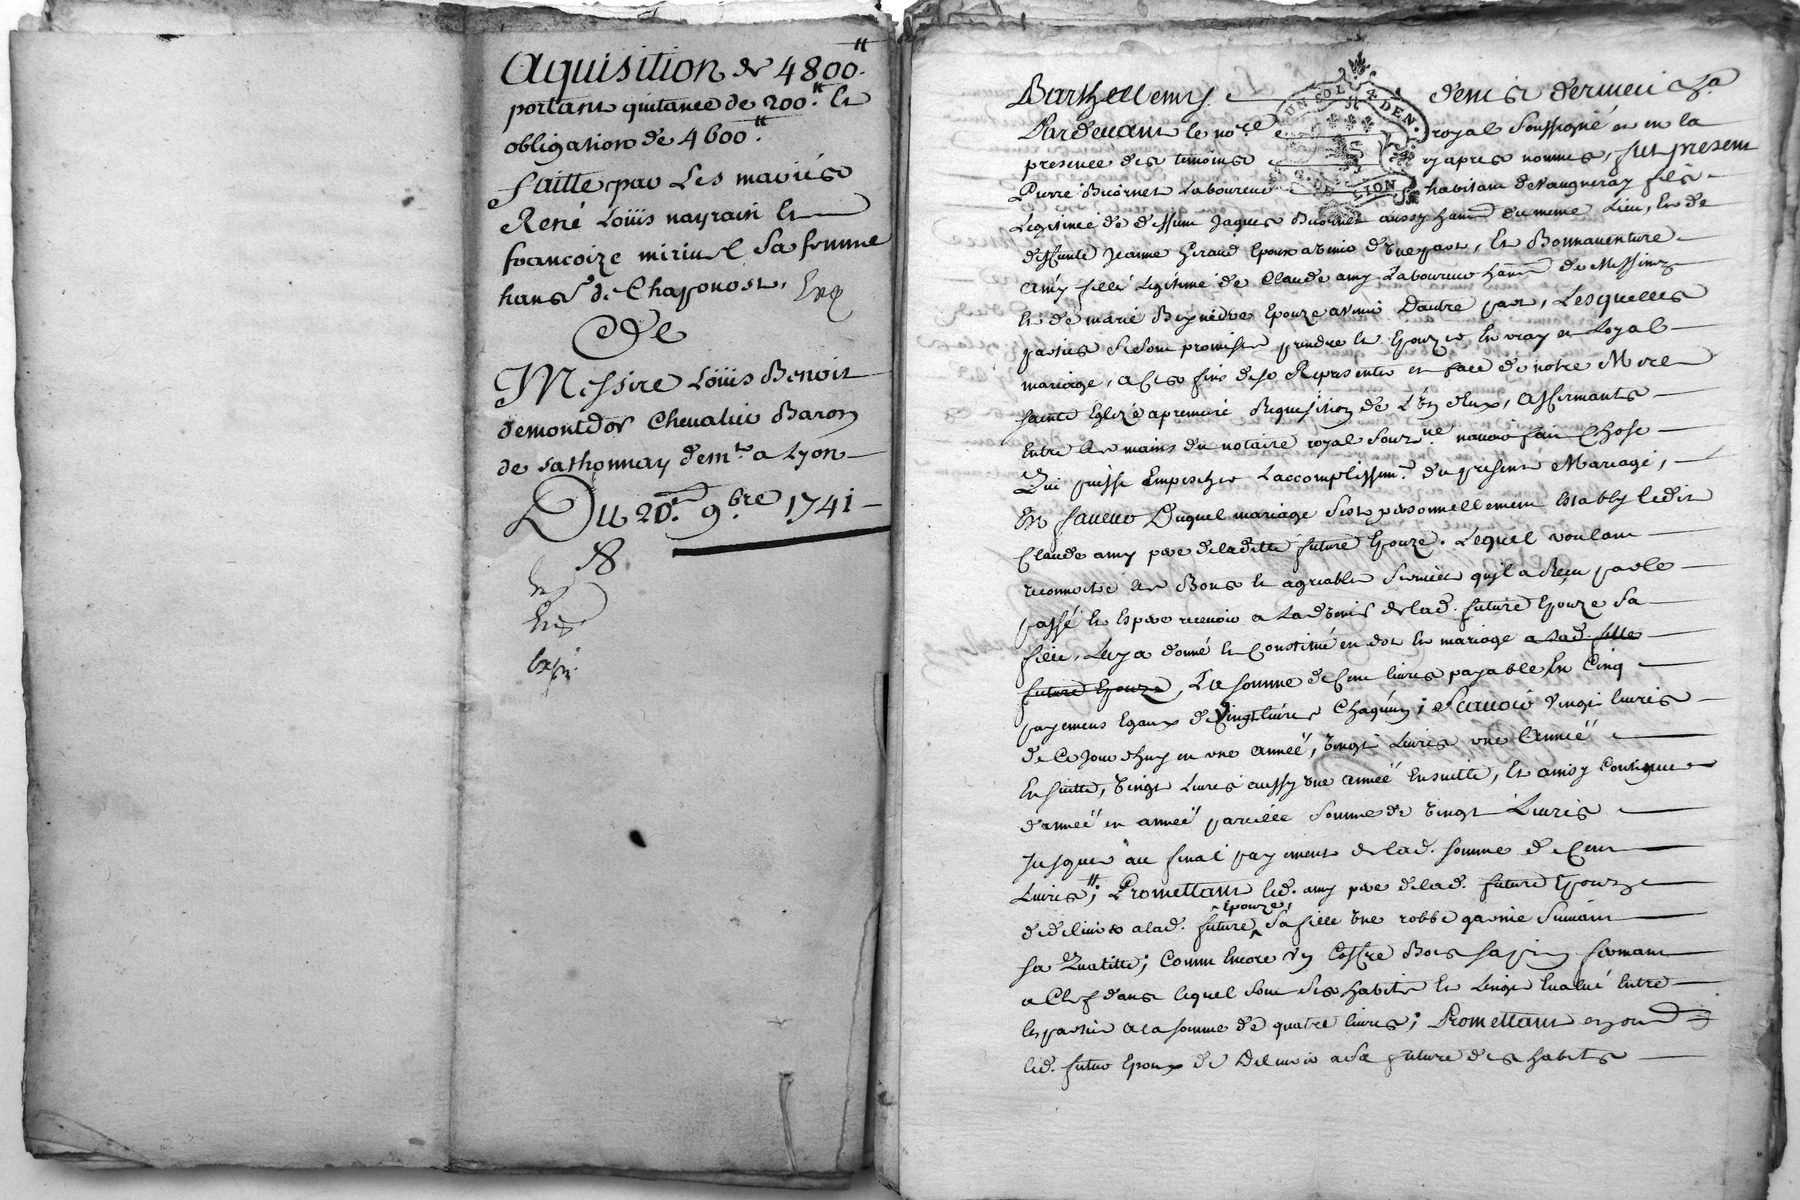 Aquisition de 4800.tt
portant quitance de 200.tt Et
obligation de 4600.tt
faitte par Les mariés
René Loüis nayrain Et
francoize miriu sa femme
hans. de Chaponost,
De
Messire Loüis Benoit
demontdor Chevalier Baron
de sathonnay demt. a Lyon
Du 20.e 9.bre 1741
Barthellemy.
UN SOL 4 DEN.
Pardevant le nore royal soussigné et en la
presence des temoins cy apres nommés, fut present
Pierre Laboureur habitant de Vaugneray fils
Legitime de deffunt Jaques aussy hant du meme Lieu, Et de
deffunte Jeanne Giraud Epoux avenir d'une part, Et Bonnaventure
amy fille Legitime de Claude amy Laboureur hant de Messimy
Et de marie Epouze avenir D'autre part, Lesquelles
parties se sont promis prendre Et Epouzer En vray et Loyal
mariage, a ces fins de se Representer en face de notre Mere
sainte Eglize a premiere Requisition de L'un d'eux, affirmants
Entre les mains du notaire royal sous.né n'avoir fait Chose
Qui puisse Empescher L'accomplissemt. du present Mariage,
En faveur Duquel mariage s'est personnellement Estably ledit
Claude amy pere de laditte future Epouze. Lequel voulant
reconnoitre Les Bons Et agreables services qu'il a Reçu par le
passé Et Espere recevoir a Ladvenir de lad. future Epouze sa
fille, Luy a donné Et Constitué en dot Et mariage a sad. fille
future Epouze, La somme de Cent livres payable En Cinq
payemens Egaux de Vingt livres Chaqu'un; Scavoir Vingt livres
de Ce Jourdhuy en une année, Vingt Livres une Année
Ensuitte, Vingt Livres aussy une année Ensuitte, Et ainsy Continuer
d'année en année pareille somme de Vingt Livres
Jusques au final payement de lad. somme de Cent
Livres; Promettant led. amy pere de lad. future Epouze
de delivrer a lad. future Epouze, sa fille Une robbe garnie suivant
sa Qualitté; Comm Encore Un Coffre Bois sapin fermant
a Clef dans lequel sont ses habits Et Linge Evalué Entre
les parties a la somme de quatre livres; Promettant
led. futur Epoux de Delivrer a Sa future des habits